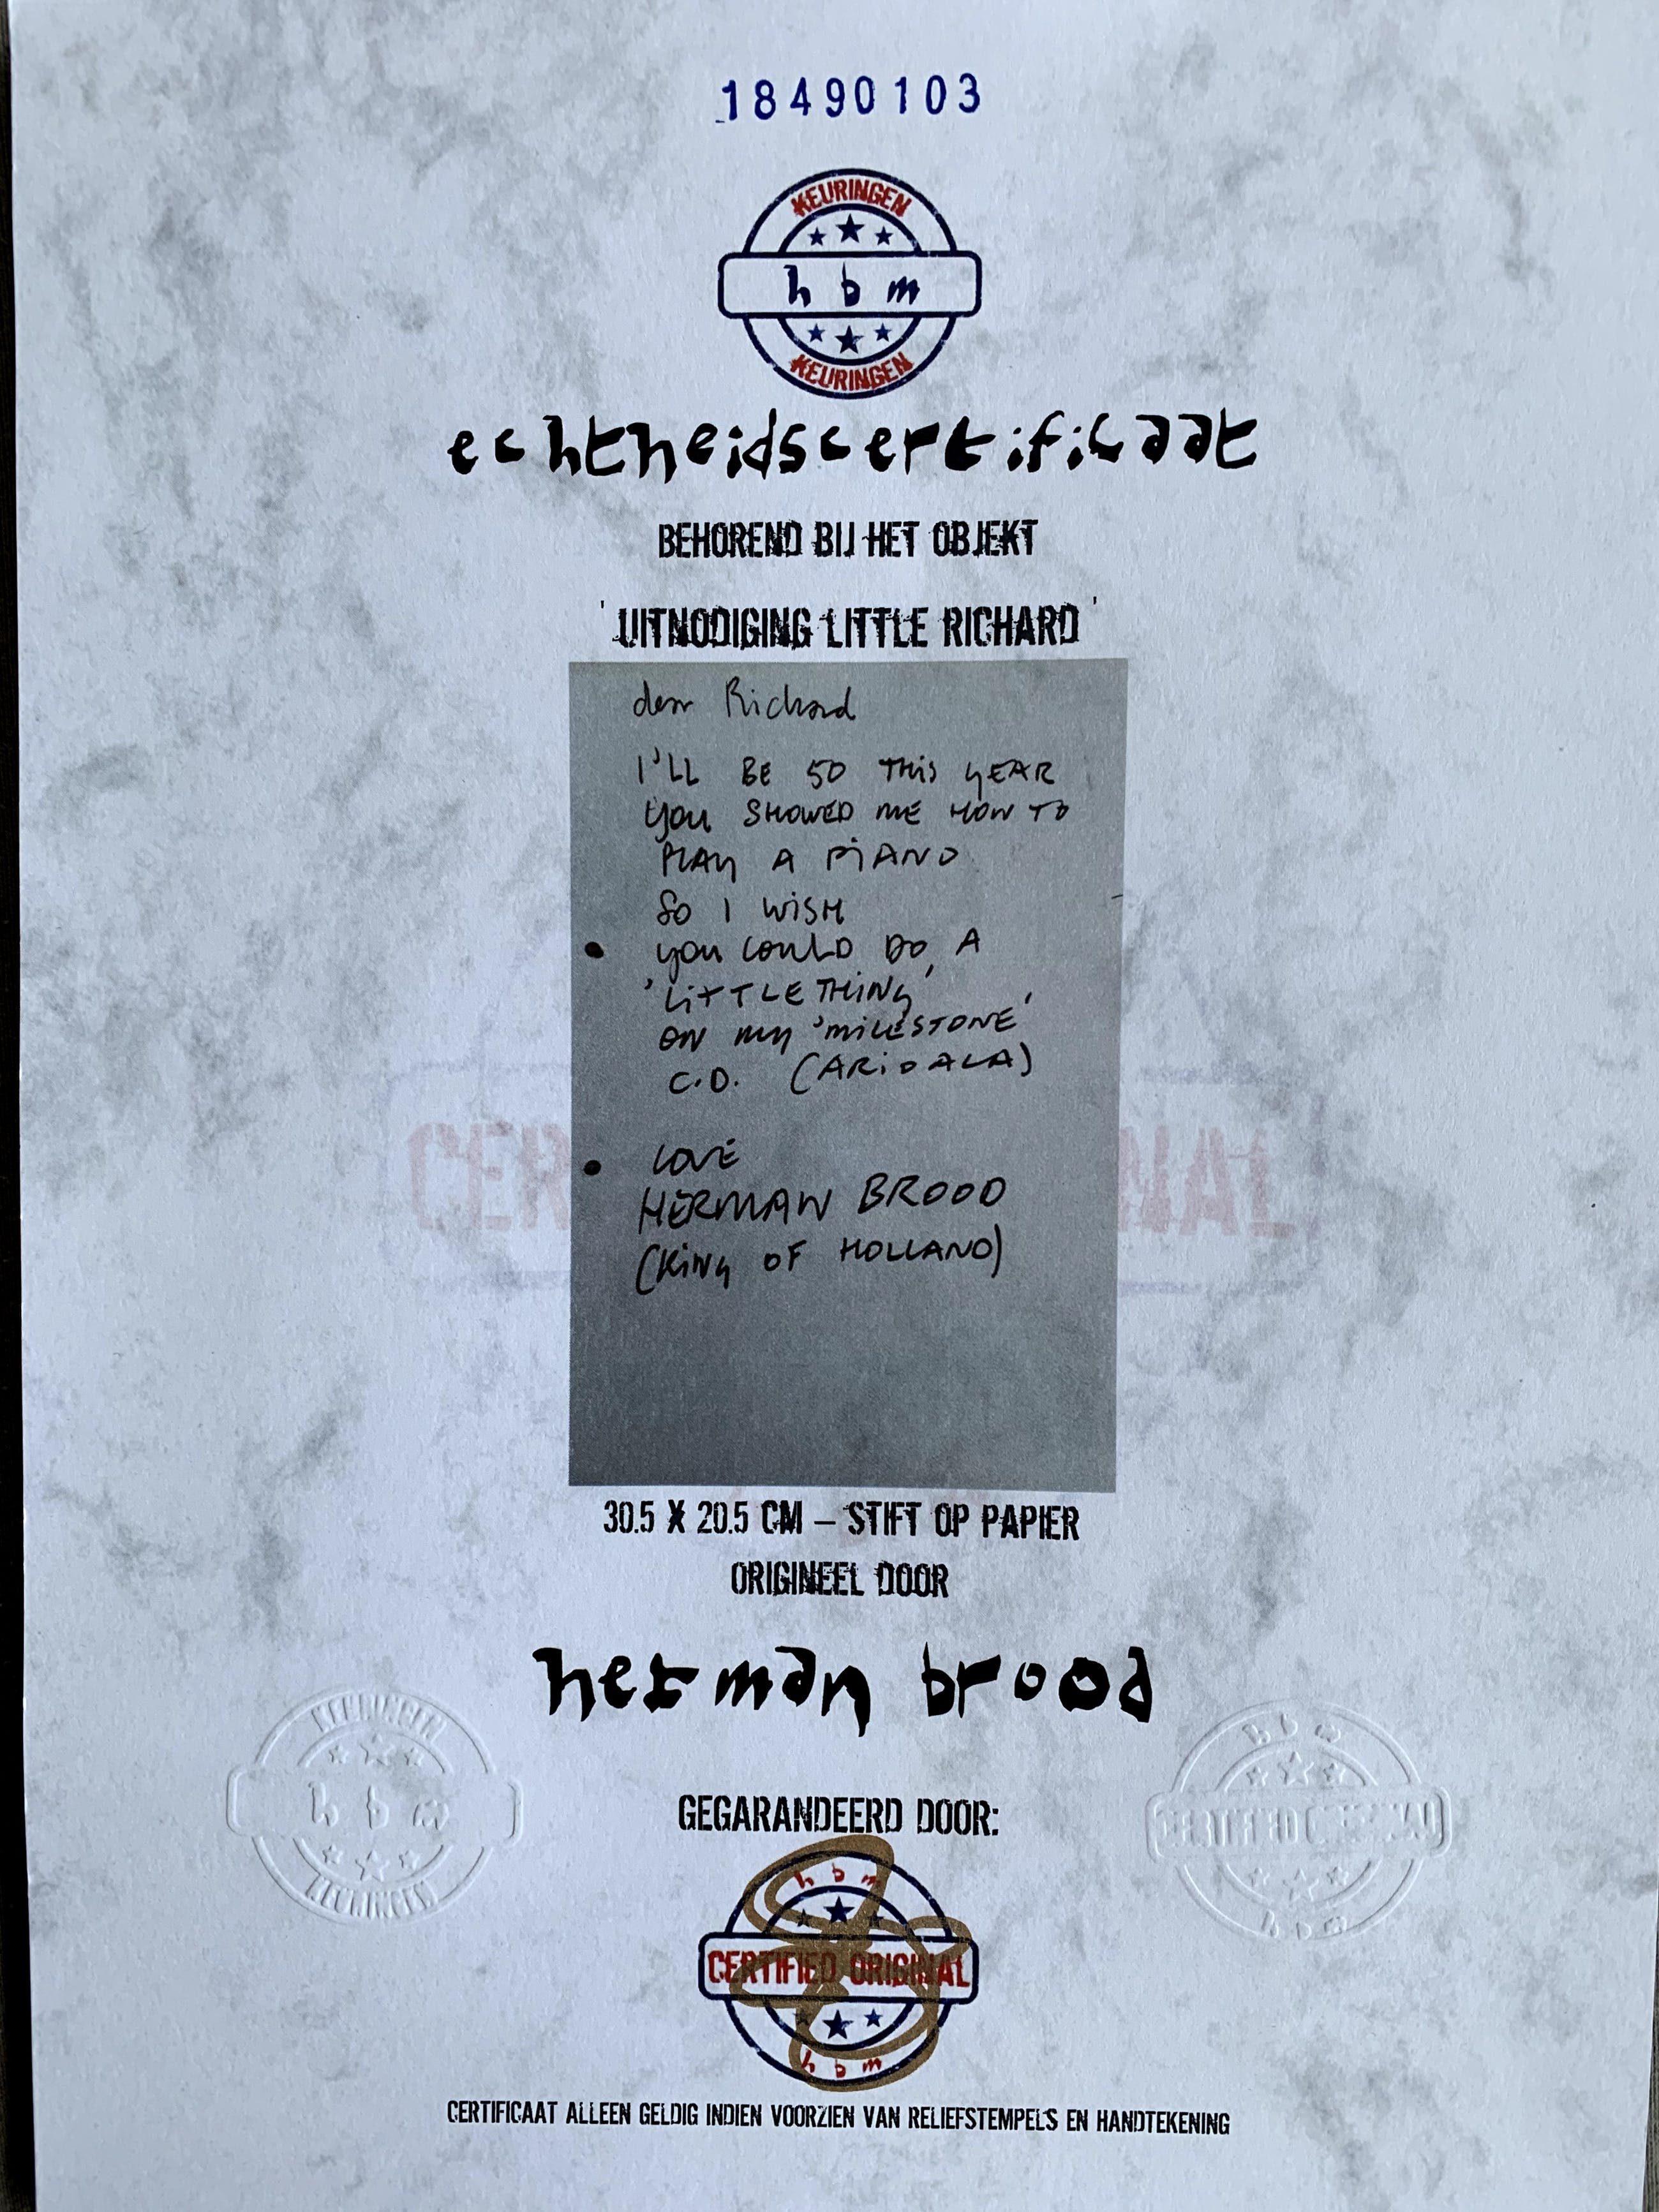 18490103
KEURINGEN
h b m
KEURINGEN
echtheidscertificaat
BEHOREND BIJ HET OBJEKT
'UITNODIGING LITTLE RICHARD'
dear Richard
I'LL BE 50 THIS YEAR
YOU SHOWED ME HOW TO
PLAY A PIANO
SO I WISH
YOU COULD DO A
'LITTLE THING'
ON MY 'MILESTONE'
C.D. (ARIOALA)
LOVE
HERMAN BROOD
(KING OF HOLLAND)
30.5 X 20.5 CM – STIFT OP PAPIER
ORIGINEEL DOOR
herman brood
KEURINGEN
h b m
KEURINGEN
h b m
CERTIFIED ORIGINAL
h b m
GEGARANDEERD DOOR:
h b m
CERTIFIED ORIGINAL
h b m
CERTIFICAAT ALLEEN GELDIG INDIEN VOORZIEN VAN RELIEFSTEMPELS EN HANDTEKENING